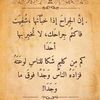 إنّ الجراح إذا خبأتها شُفيت
فاكتم جراحك، لا تخبر بها
أحدًا
كم من كليمٍ شكا للناس لوعتهُ
فزاده الناس وجدًا فوق ما
وجدا!